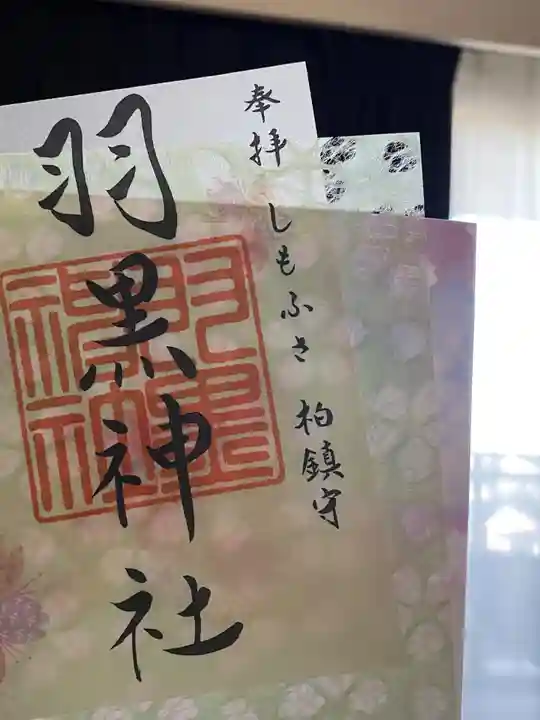 奉拝 しもふさ 柏鎮守
羽黒神社
羽黒
神社